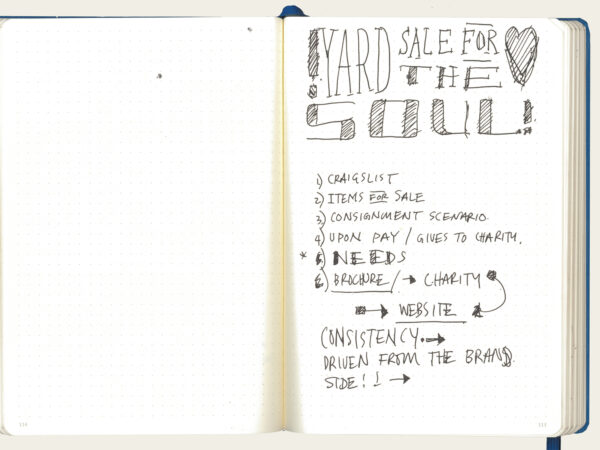 !YARD SALE FOR
THE
SOUL!
1) CRAIGSLIST
2) ITEMS FOR SALE
3) CONSIGNMENT SCENARIO.
4) UPON PAY / GIVES TO CHARITY.
* 5) NEEDS
6) BROCHURE / → CHARITY
→ WEBSITE
CONSISTENCY. →
DRIVEN FROM THE BRAND
SIDE! ! →